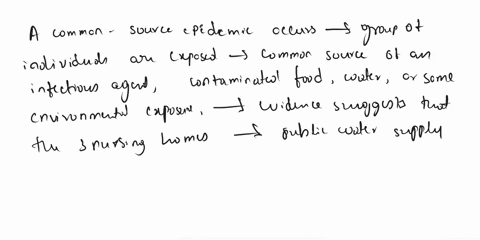 A common- source epidemic occurs → group of
individuals are exposed → common source of an
infectious agent, contaminated food, water, or some
environmental exposure, → evidence suggests that
the 3 nursing homes → public water supply